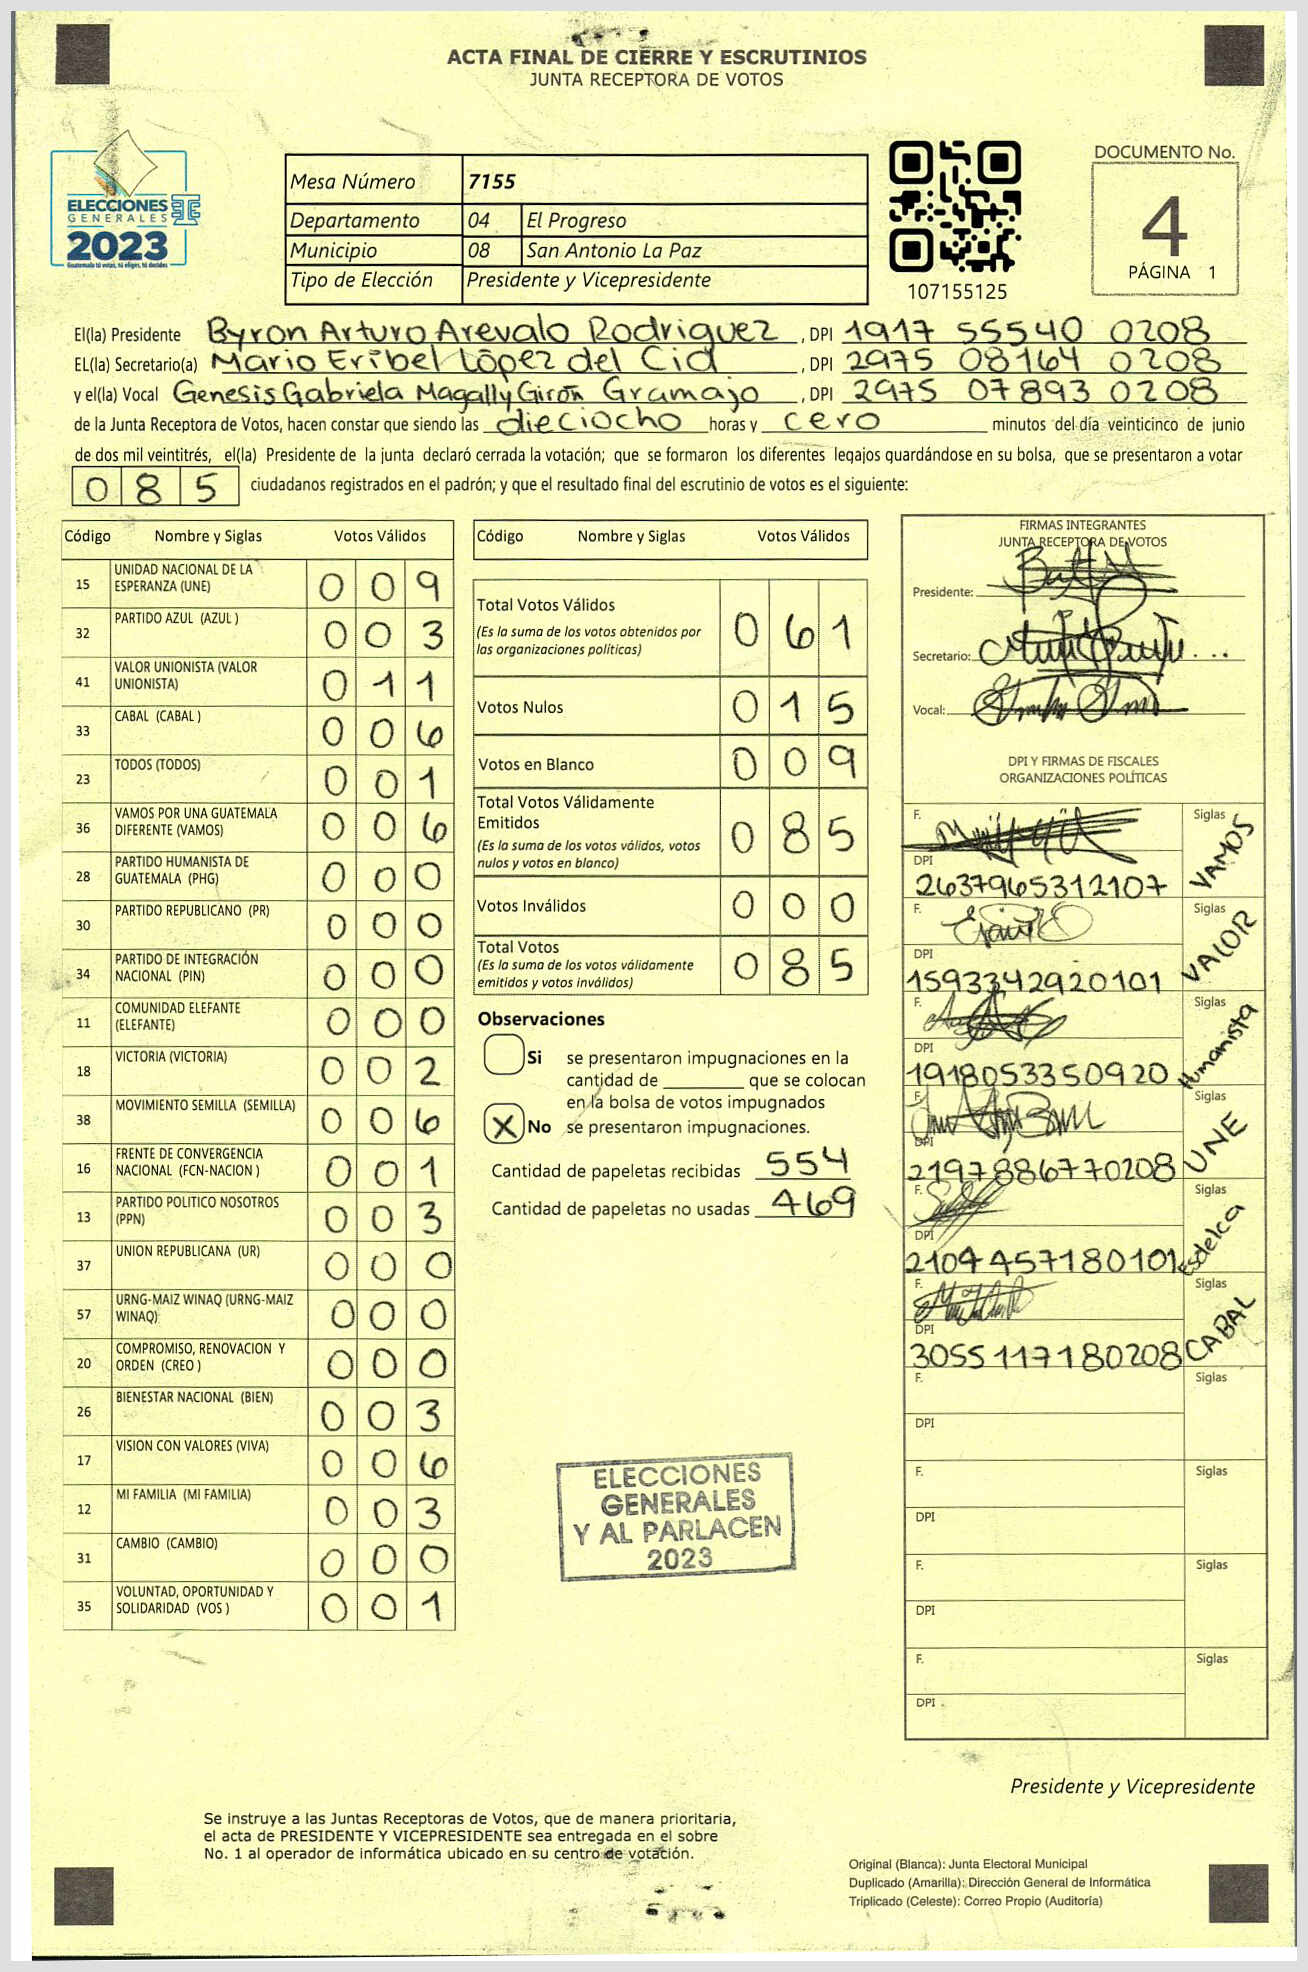 ACTA FINAL DE CIERRE Y ESCRUTINIOS
JUNTA RECEPTORA DE VOTOS
ELECCIONES
GENERALES
2023
Guatemala tú votas, tú eliges, tú decides
Mesa Número 7155
Departamento 04 El Progreso
Municipio 08 San Antonio La Paz
Tipo de Elección Presidente y Vicepresidente
107155125
DOCUMENTO No.
4
PÁGINA 1
El(la) Presidente Byron Arturo Arevalo Rodriguez, DPI 1917 55540 0208
EL(la) Secretario(a) Mario Eribel López del Cid, DPI 2975 08164 0208
y el(la) Vocal Genesis Gabriela Magally Girón Gramajo, DPI 2975 07893 0208
de la Junta Receptora de Votos, hacen constar que siendo las dieciocho horas y cero minutos del día veinticinco de junio
de dos mil veintitrés, el(la) Presidente de la junta declaró cerrada la votación; que se formaron los diferentes legajos guardándose en su bolsa, que se presentaron a votar
085 ciudadanos registrados en el padrón; y que el resultado final del escrutinio de votos es el siguiente:
Código Nombre y Siglas Votos Válidos
15 UNIDAD NACIONAL DE LA ESPERANZA (UNE) 009
32 PARTIDO AZUL (AZUL ) 003
41 VALOR UNIONISTA (VALOR UNIONISTA) 011
33 CABAL (CABAL ) 006
23 TODOS (TODOS) 001
36 VAMOS POR UNA GUATEMALA DIFERENTE (VAMOS) 006
28 PARTIDO HUMANISTA DE GUATEMALA (PHG) 000
30 PARTIDO REPUBLICANO (PR) 000
34 PARTIDO DE INTEGRACIÓN NACIONAL (PIN) 000
11 COMUNIDAD ELEFANTE (ELEFANTE) 000
18 VICTORIA (VICTORIA) 002
38 MOVIMIENTO SEMILLA (SEMILLA) 006
16 FRENTE DE CONVERGENCIA NACIONAL (FCN-NACION ) 001
13 PARTIDO POLITICO NOSOTROS (PPN) 003
37 UNION REPUBLICANA (UR) 000
57 URNG-MAIZ WINAQ (URNG-MAIZ WINAQ) 000
20 COMPROMISO, RENOVACION Y ORDEN (CREO ) 000
26 BIENESTAR NACIONAL (BIEN) 003
17 VISION CON VALORES (VIVA) 006
12 MI FAMILIA (MI FAMILIA) 003
31 CAMBIO (CAMBIO) 000
35 VOLUNTAD, OPORTUNIDAD Y SOLIDARIDAD (VOS ) 001
Código Nombre y Siglas Votos Válidos
Total Votos Válidos 061
(Es la suma de los votos obtenidos por
las organizaciones políticas)
Votos Nulos 015
Votos en Blanco 009
Total Votos Válidamente
Emitidos 085
(Es la suma de los votos válidos, votos
nulos y votos en blanco)
Votos Inválidos 000
Total Votos 085
(Es la suma de los votos válidamente
emitidos y votos inválidos)
Observaciones
Si se presentaron impugnaciones en la
cantidad de ________ que se colocan
en la bolsa de votos impugnados
X No se presentaron impugnaciones.
Cantidad de papeletas recibidas 554
Cantidad de papeletas no usadas 469
ELECCIONES
GENERALES
Y AL PARLACEN
2023
FIRMAS INTEGRANTES
JUNTA RECEPTORA DE VOTOS
Presidente:
Secretario:
Vocal:
DPI Y FIRMAS DE FISCALES
ORGANIZACIONES POLÍTICAS
F. Siglas VAMOS
DPI
2637965312107
F. Siglas VALOR
DPI
1593342920101
F. Siglas Humanista
DPI
1918053350920
F. Siglas UNE
DPI
2197886770208
F. Siglas Esdelca
DPI
2104457180101
F. Siglas CABAL
DPI
3055117180208
F. Siglas
DPI
F. Siglas
DPI
F. Siglas
DPI
F. Siglas
DPI
Presidente y Vicepresidente
Se instruye a las Juntas Receptoras de Votos, que de manera prioritaria,
el acta de PRESIDENTE Y VICEPRESIDENTE sea entregada en el sobre
No. 1 al operador de informática ubicado en su centro de votación.
Original (Blanca): Junta Electoral Municipal
Duplicado (Amarilla): Dirección General de Informática
Triplicado (Celeste): Correo Propio (Auditoría)